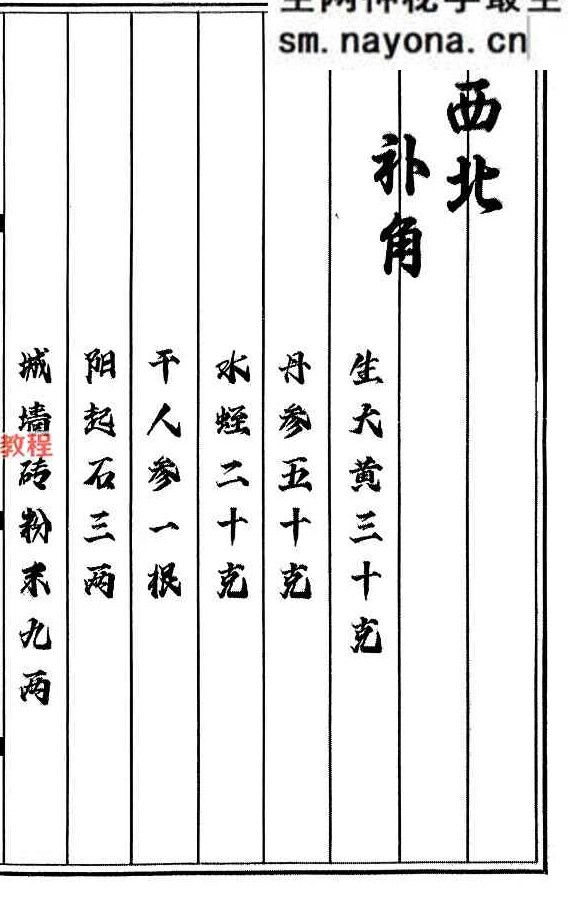 sm.nayona.cn
西北
补角
生大黄三十克
丹参五十克
水蛭二十克
干人参一根
阳起石三两
城墙砖粉末九两
教程